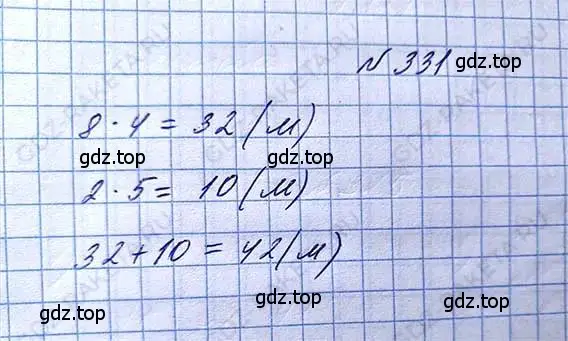 № 331
gdz.top
8 · 4 = 32 (м)
gdz.top gdz.top
2 · 5 = 10 (м)
32 + 10 = 42 (м)
gdz.top gdz.top gdz.top